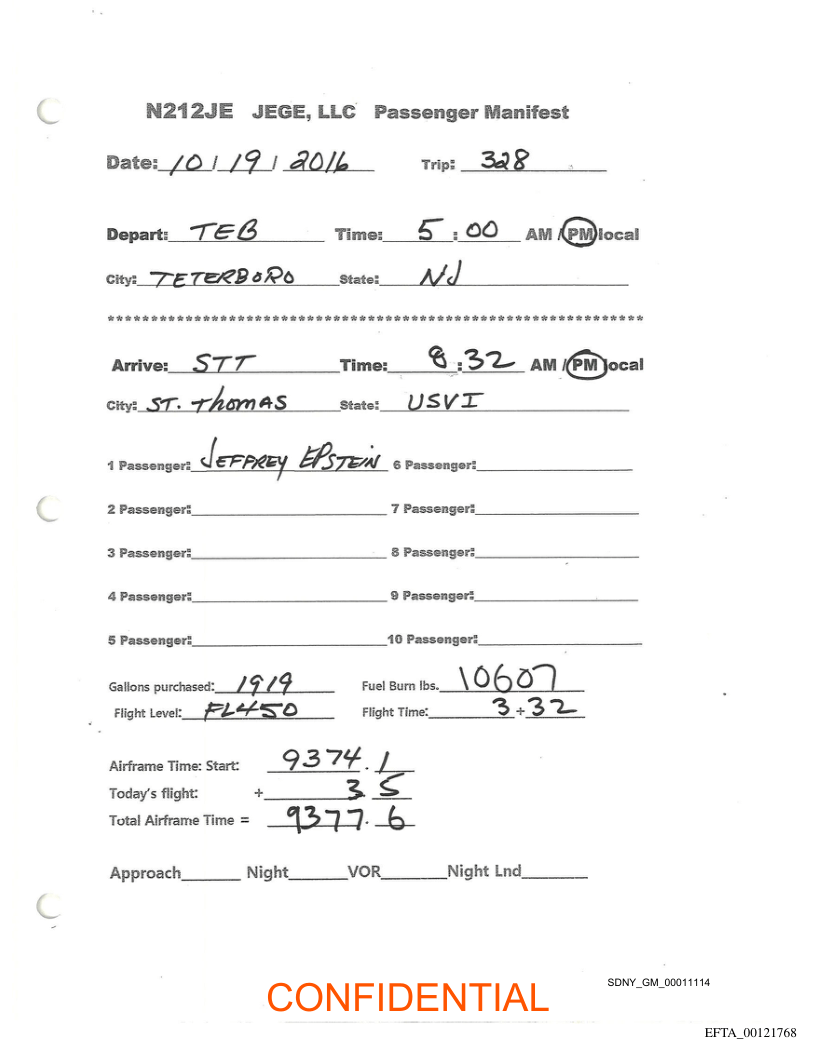 N212JE JEGE, LLC Passenger Manifest
Date: 10 / 19 / 2016 Trip: 328
Depart: TEB Time: 5 : 00 AM / PM local
City: TETERBORO State: NJ
************************************************************
Arrive: STT Time: 8 : 32 AM / PM local
City: ST. THOMAS State: USVI
1 Passenger: JEFFREY EPSTEIN 6 Passenger:
2 Passenger: 7 Passenger:
3 Passenger: 8 Passenger:
4 Passenger: 9 Passenger:
5 Passenger: 10 Passenger:
Gallons purchased: 1919 Fuel Burn lbs. 10607
Flight Level: FL450 Flight Time: 3 + 32
Airframe Time: Start: 9374.1
Today's flight: + 3 5
Total Airframe Time = 9377.6
Approach Night VOR Night Lnd
SDNY_GM_00011114
CONFIDENTIAL
EFTA_00121768